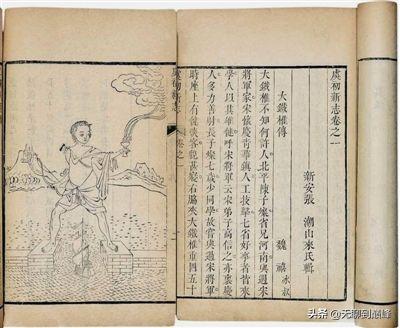 虞初新志卷之一
新安張 潮山來氏輯
大鐵椎傳 魏禧 冰叔
大鐵椎不知何許人北平陳子燦省兄河南與遇宋
將軍家宋懷慶青華鎮人工技擊七省好事者皆來
學人以其雄健呼宋將軍云宋弟子高信之亦懷慶
人多力善射長子燦七歲少同學故嘗與過宋將軍
時座上有健啖客貌甚寢右脇夾大鐵椎重四五十
虞初新志
卷之一
头条 @天聊到巅峰